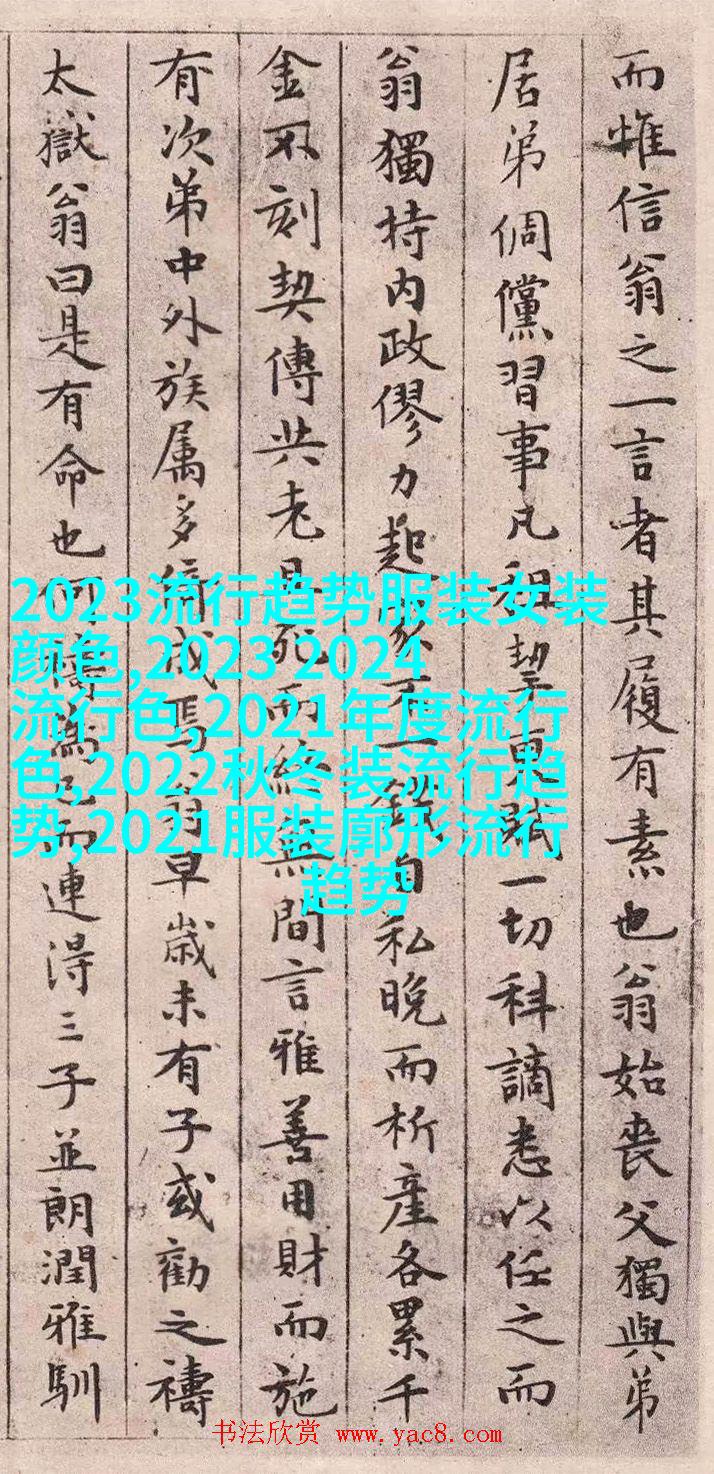 而惟信翁之一言者其履有素也翁始喪父獨與弟
居弟倜儻習事凡租契更賦一切科謫悉以任之而
翁獨持内政僇力起家不一錢自私晚而析產各累千
金不刻契傳共老且死而終無間言雅善用財而施
有次第中外族属多倚成焉翁早歲未有子或勸之禱
太嶽翁曰是有命也何禱為已而連得三子並朗潤雅馴
2023流行趋势服装女装
颜色,2023 2024
流行色,2021年度流行
色,2022秋冬装流行趋
势,2021服装廓形流行
趋势
书法欣赏 www.yac8.com